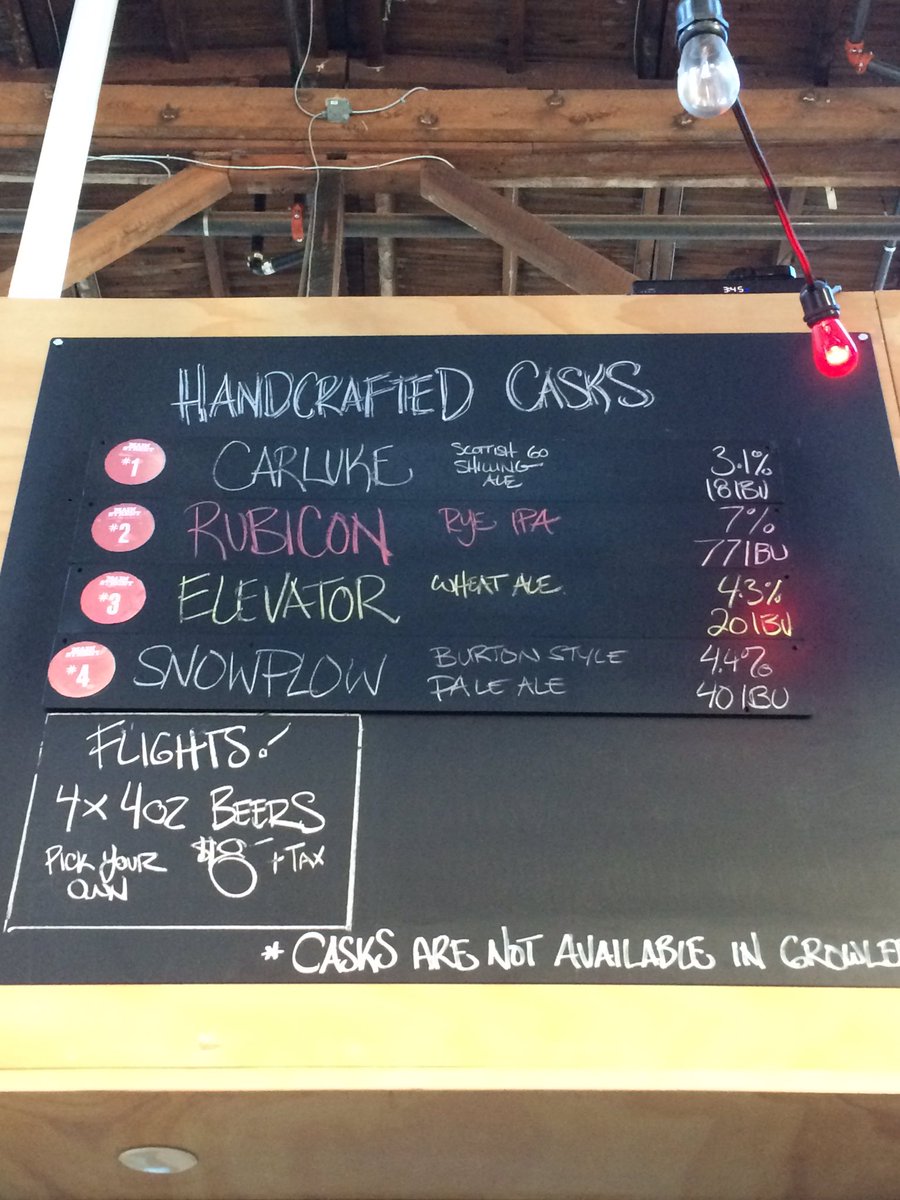 3:45
HANDCRAFTED CASKS
MAIN STREET #1 CARLUKE SCOTTISH 60 SHILLING ALE 3.1% 18 IBU
MAIN STREET #2 RUBICON RYE IPA 7% 77 IBU
MAIN STREET #3 ELEVATOR WHEAT ALE 4.3% 20 IBU
MAIN STREET #4 SNOWPLOW BURTON STYLE PALE ALE 4.4% 40 IBU
FLIGHTS!
4 x 4oz BEERS
PICK YOUR OWN $8 + TAX
* CASKS ARE NOT AVAILABLE IN GROWLE